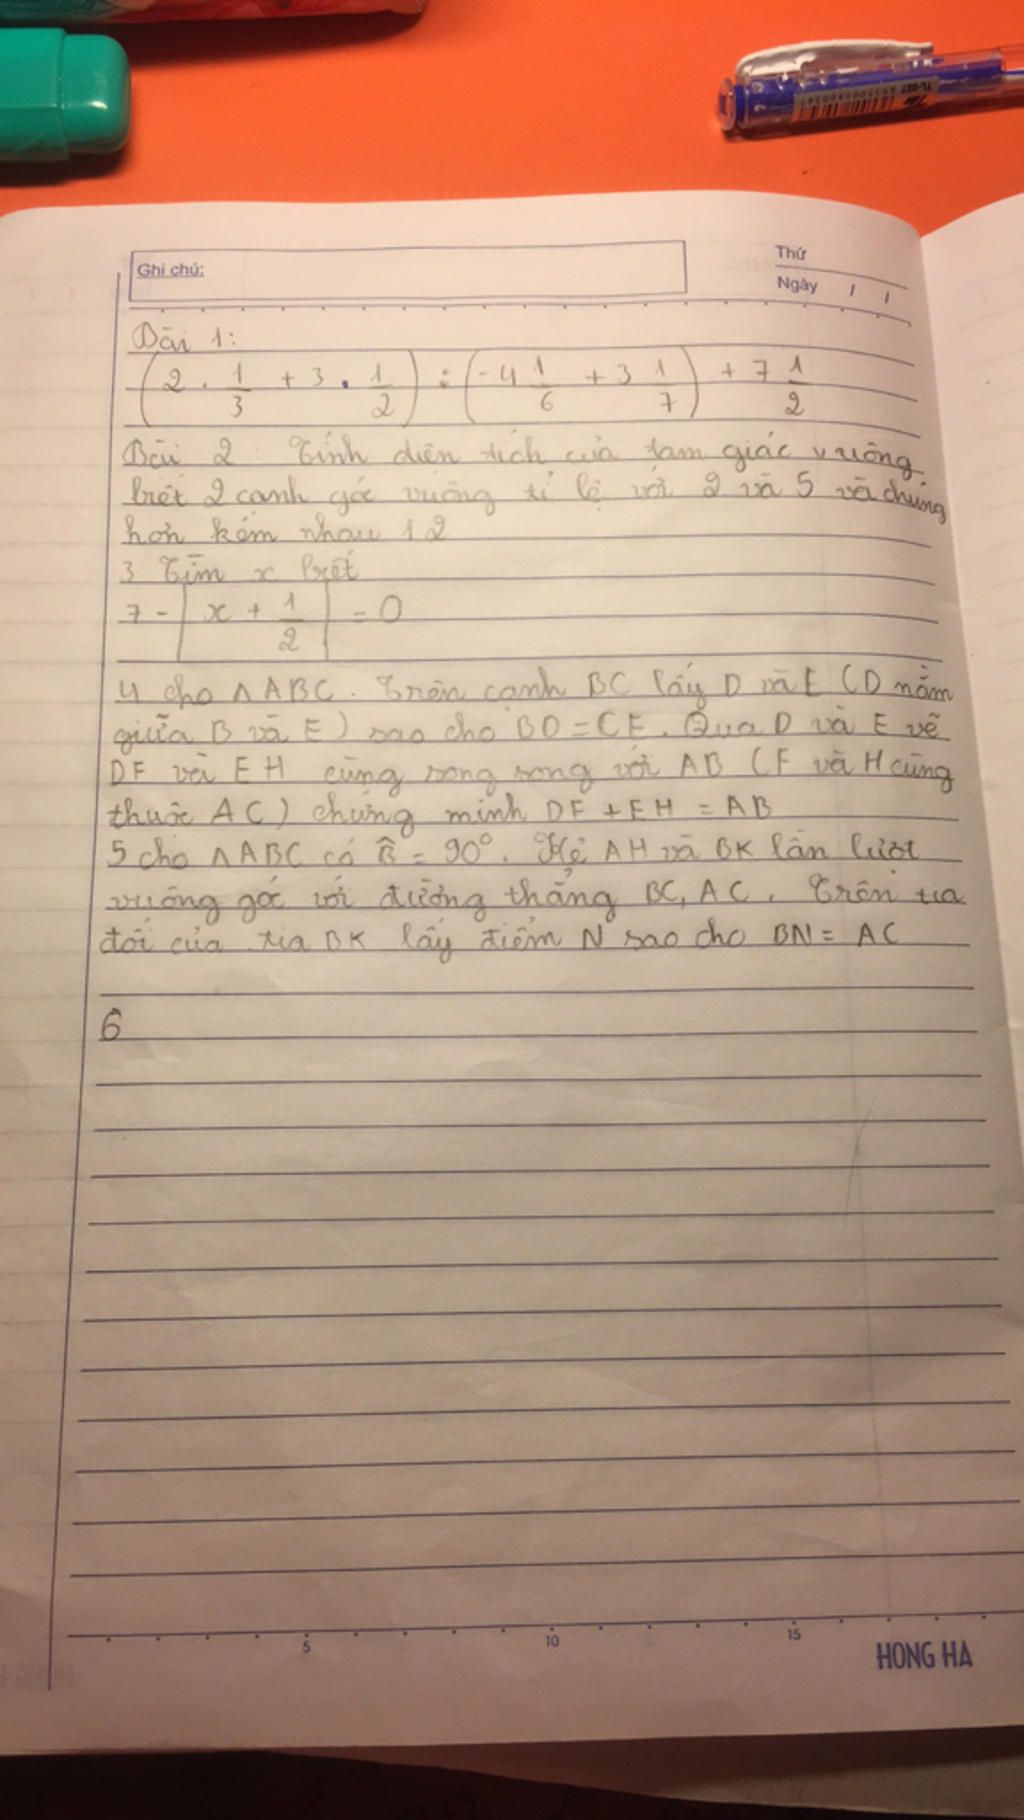 Ghi chú:
Thứ
Ngày / /
Bài 1:
(2 . 1/3 + 3 . 1/2) : (-4 1/6 + 3 1/7) + 7 1/2
Bài 2: Tính diện tích của tam giác vuông
biết 2 cạnh góc vuông tỉ lệ với 2 và 5 và chúng
hơn kém nhau 12
3 Tìm x biết
7 - | x + 1/2 | = 0
4 cho ΔABC. Trên cạnh BC lấy D và E (D nằm
giữa B và E) sao cho BD = CE. Qua D và E vẽ
DF và EH cùng song song với AB (F và H cùng
thuộc AC) chứng minh DF + EH = AB
5 cho ΔABC có B̂ = 90°. Kẻ AH và BK lần lượt
vuông góc với đường thẳng BC, AC. Trên tia
đối của tia BK lấy điểm N sao cho BN = AC
6
5 10 15
HONG HA